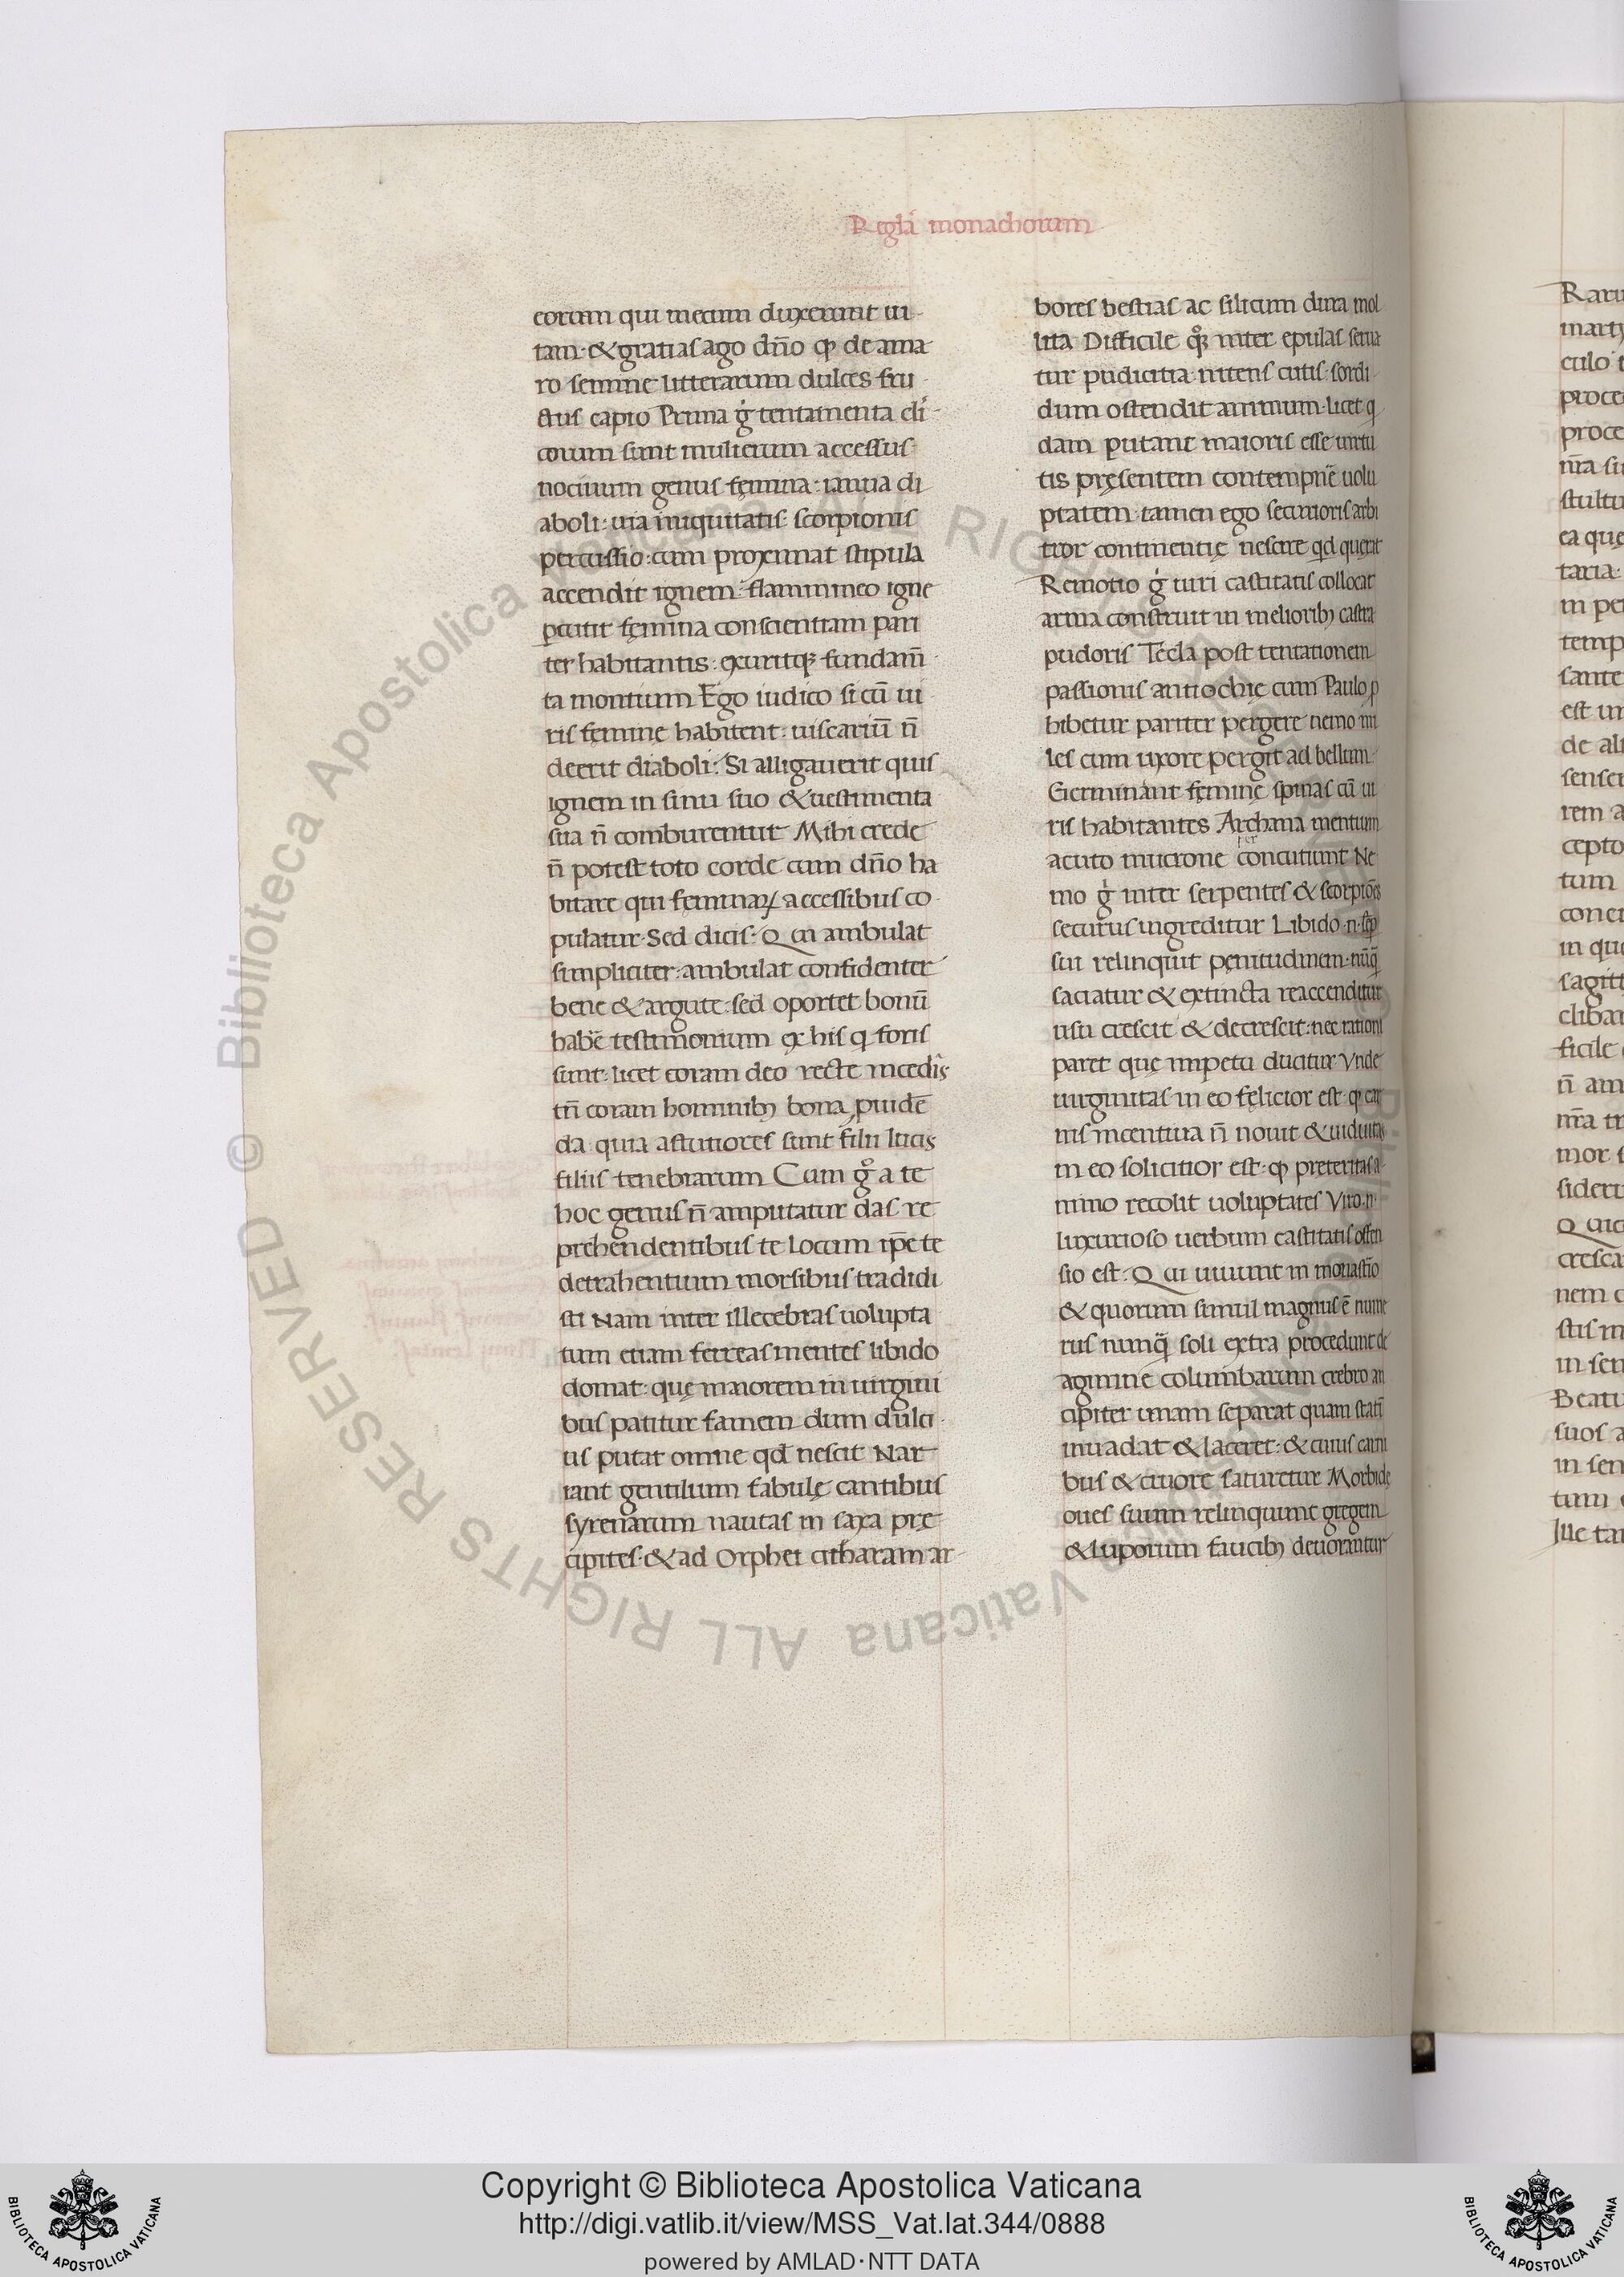 Regla monachorum
eorum qui mecum duxerunt ui-
tam·&gratias ago dño qp de ama
ro semine litterarum dulces fru
ctus capio Prima g̊ tentamenta cli-
corum sunt mulierum accessus
nociuum genus femina: ianua di
aboli: uia iniquitatis: scorpionis
percussio: cum proximat stipula
accendit ignem: flammineo igne
pcutit femina conscientiam pari
ter habitantis: exuritq; fundam̄
ta montium Ego iudico si cū ui
ris femine habitent: uiscariū n̄
deerit diaboli: Si alligauerit quis
ignem in sinu suo &uestimenta
sua n̄ comburentur Mihi crede
n̄ potest toto corde cum dño ha
bitare qui feminaꝝ accessibus co-
pulatur·Sed dicis: Qui ambulat
simpliciter: ambulat confidenter
bene &argute: sed oportet bonū
habē testimonium ex his q foris
sunt: licet coram deo recte incedis
tn̄ coram hominib; bona ꝓuidē
da· quia astutiores sunt filii lucis
filiis tenebrarum Cum g̊ a te
hoc genus n̄ amputatur das re
prehendentibus te locum ip̄e te
detrahentium morsibus tradidi
sti Nam inter illecebras uolupta
tum etiam ferreas mentes libido
domat: quę maiorem in uirgini
bus patitur famem dum dulci-
us putat omne qd nescit Nar
rant gentilium fabulę cantibus
syrenarum nautas in saxa prę
cipites·&ad Orphei citharam ar-
bores bestias ac silicum dura mol
lita Difficile q̊; inter epulas serua
tur pudicitia nitens cutis: sordi
dum ostendit animum·licet q
dam putant maioris esse uirtu
tis pręsentem contempnē uolu
ptatem: tamen ego securioris arbi
tror continentię nescire qd querit
Remotio g̊ turi castitatis collocat
arma construit in meliorib; castra
pudoris Tecla post tentationem
passionis antiochię cum Paulo ꝓ
hibetur pariter pergere nemo mi
les cum uxore pergit ad bellum
Germinant feminę spinas cū ui
ris habitantes Archana mentium
acuto mucrone concutiunt Ne
mo g̊ inter serpentes & scorpiōes
securus ingreditur Libido·n·sep
sui relinquit penitudinem·nūq̄
saciatur & extincta reaccenditur
usu crescit & decrescit: nec rationi
paret quę impetu ducitur Vnde
uirginitas in eo felicior est·qp car
nis incentiua n̄ nouit &uiduitas
in eo solicitior est·qp preteritas a
nimo recolit uoluptates Viro·n·
luxurioso uerbum castitatis offen
sio est: Qui uiuunt in monastīo
& quorum simul magnus ē nume
rus nunq̄ soli extra procedunt de
agmine columbarum crebro an
cipiter unam separat quam statī
inuadat & laceret: & cuius carni
bus & cruore saturetur Morbidę
oues suum relinquunt gregem
&luporum faucib; deuorantur
Copyright © Biblioteca Apostolica Vaticana
http://digi.vatlib.it/view/MSS_Vat.lat.344/0888
powered by AMLAD·NTT DATA